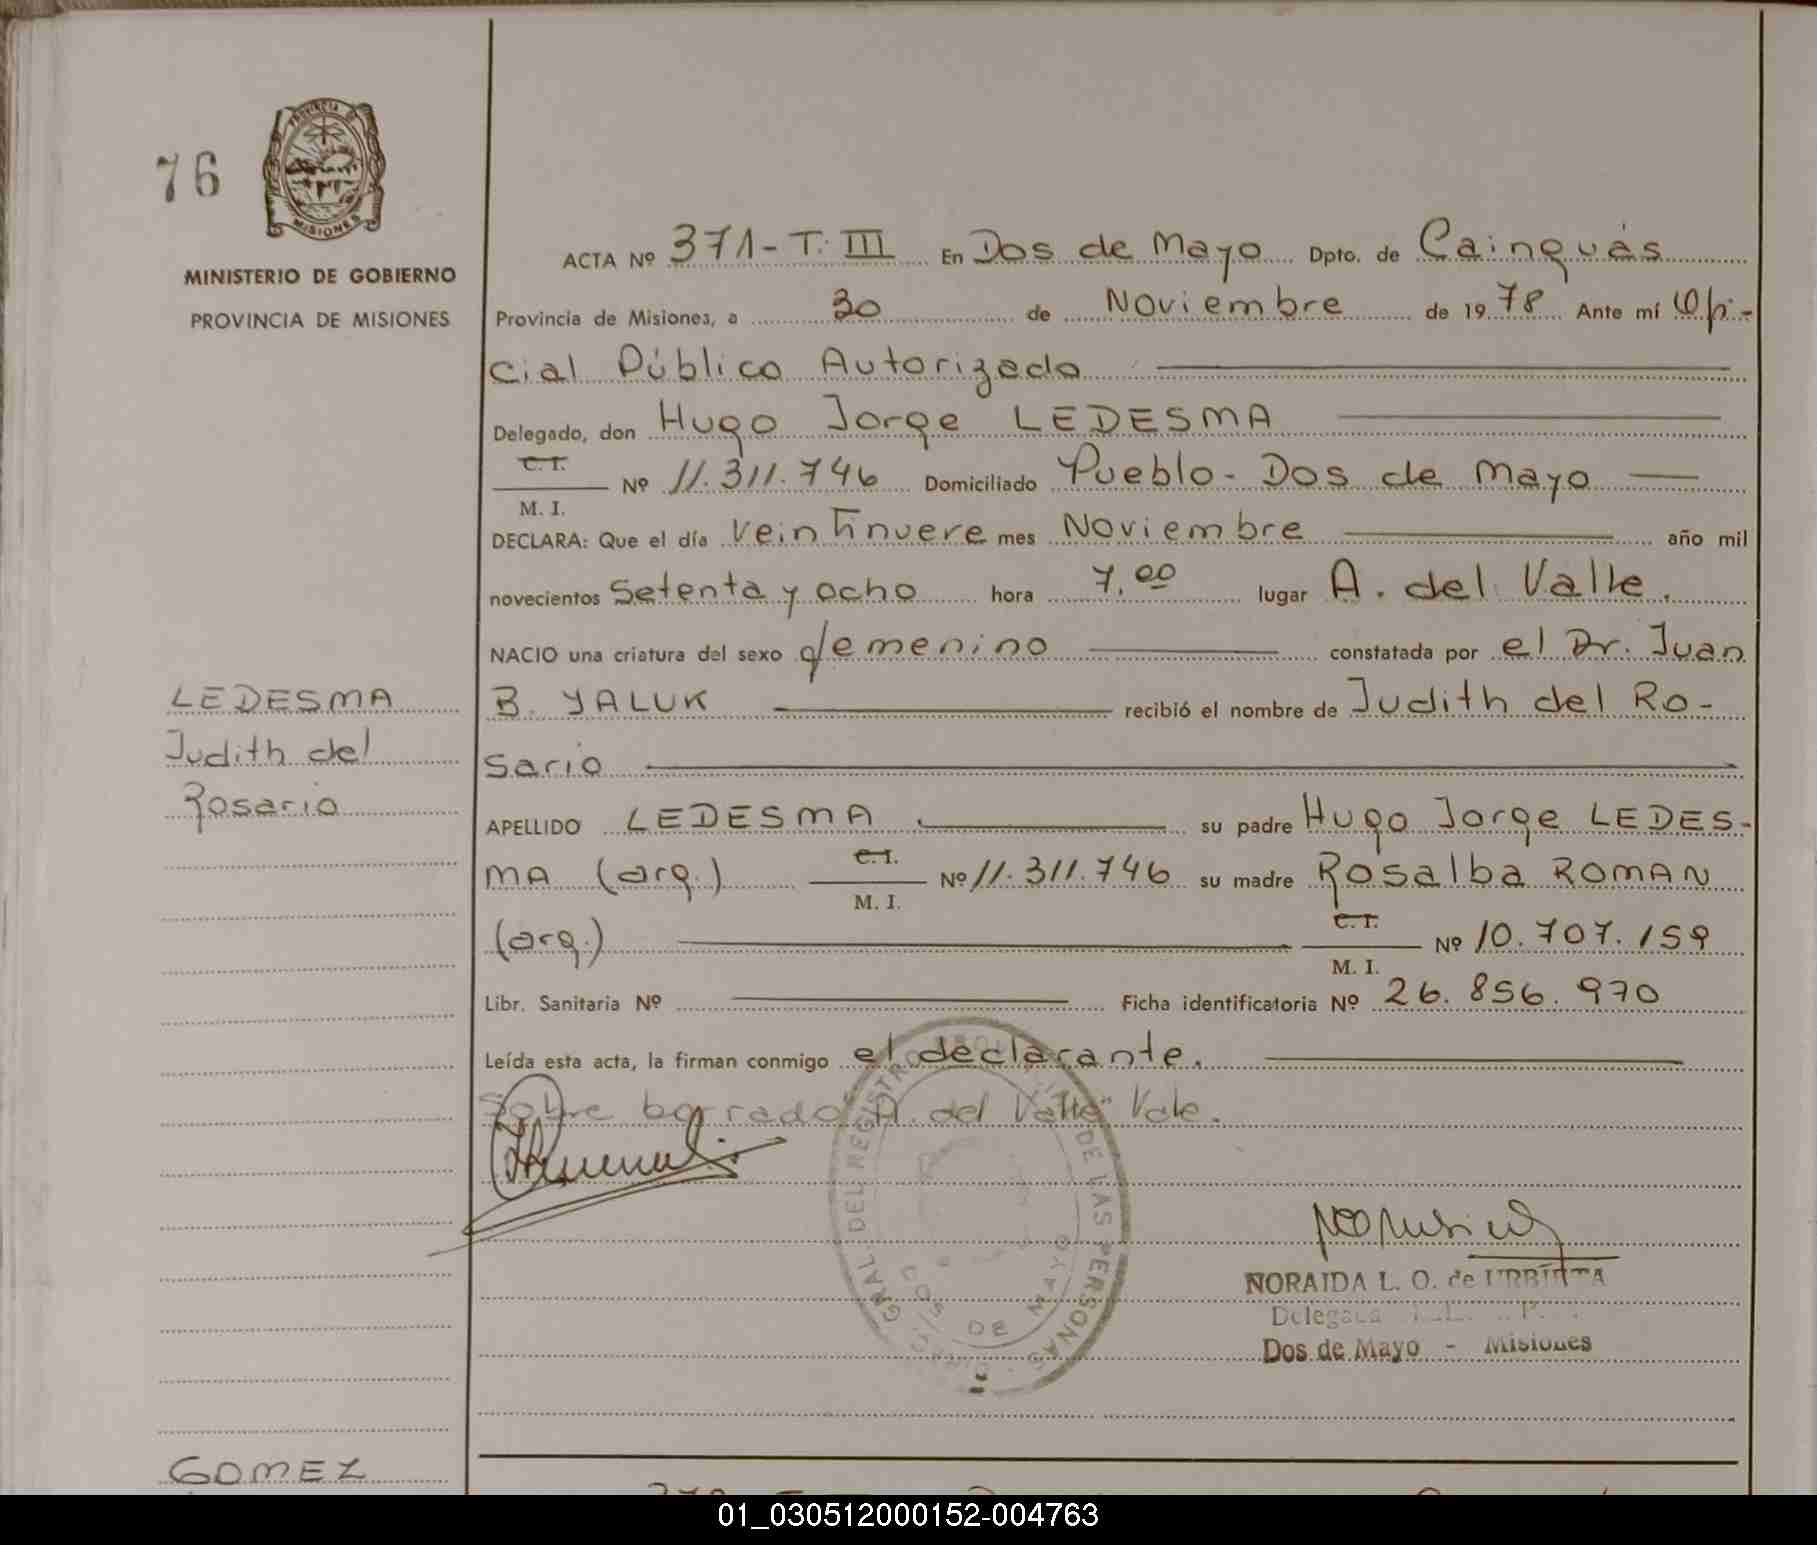 76
PROVINCIA DE
MISIONES
MINISTERIO DE GOBIERNO
PROVINCIA DE MISIONES
ACTA Nº 371 - T. III En Dos de Mayo Dpto. de Cainguás
Provincia de Misiones, a 30 de Noviembre de 1978 Ante mí Ofi-
cial Público Autorizado
Delegado, don Hugo Jorge LEDESMA
C. I.
M. I. Nº 11.311.746 Domiciliado Pueblo - Dos de Mayo
DECLARA: Que el día veintinueve mes Noviembre año mil
novecientos Setenta y ocho hora 7.00 lugar A. del Valle.
NACIO una criatura del sexo femenino constatada por el Dr. Juan
B. YALUK recibió el nombre de Judith del Ro-
sario
LEDESMA
Judith del
Rosario
APELLIDO LEDESMA su padre Hugo Jorge LEDES-
MA (arg.) C. I. M. I. Nº 11.311.746 su madre Rosalba ROMAN
(arg.) C. I. M. I. Nº 10.707.159
Libr. Sanitaria Nº Ficha identificatoria Nº 26.856.970
Leída esta acta, la firman conmigo el declarante.
Sobre borrado "A. del Valle" Vale.
GRAL. DEL REGISTRO DE LAS PERSONAS
DOS DE MAYO
NORAIDA L. O. de URBIETA
Delegada
Dos de Mayo - Misiones
GOMEZ
01_030512000152-004763